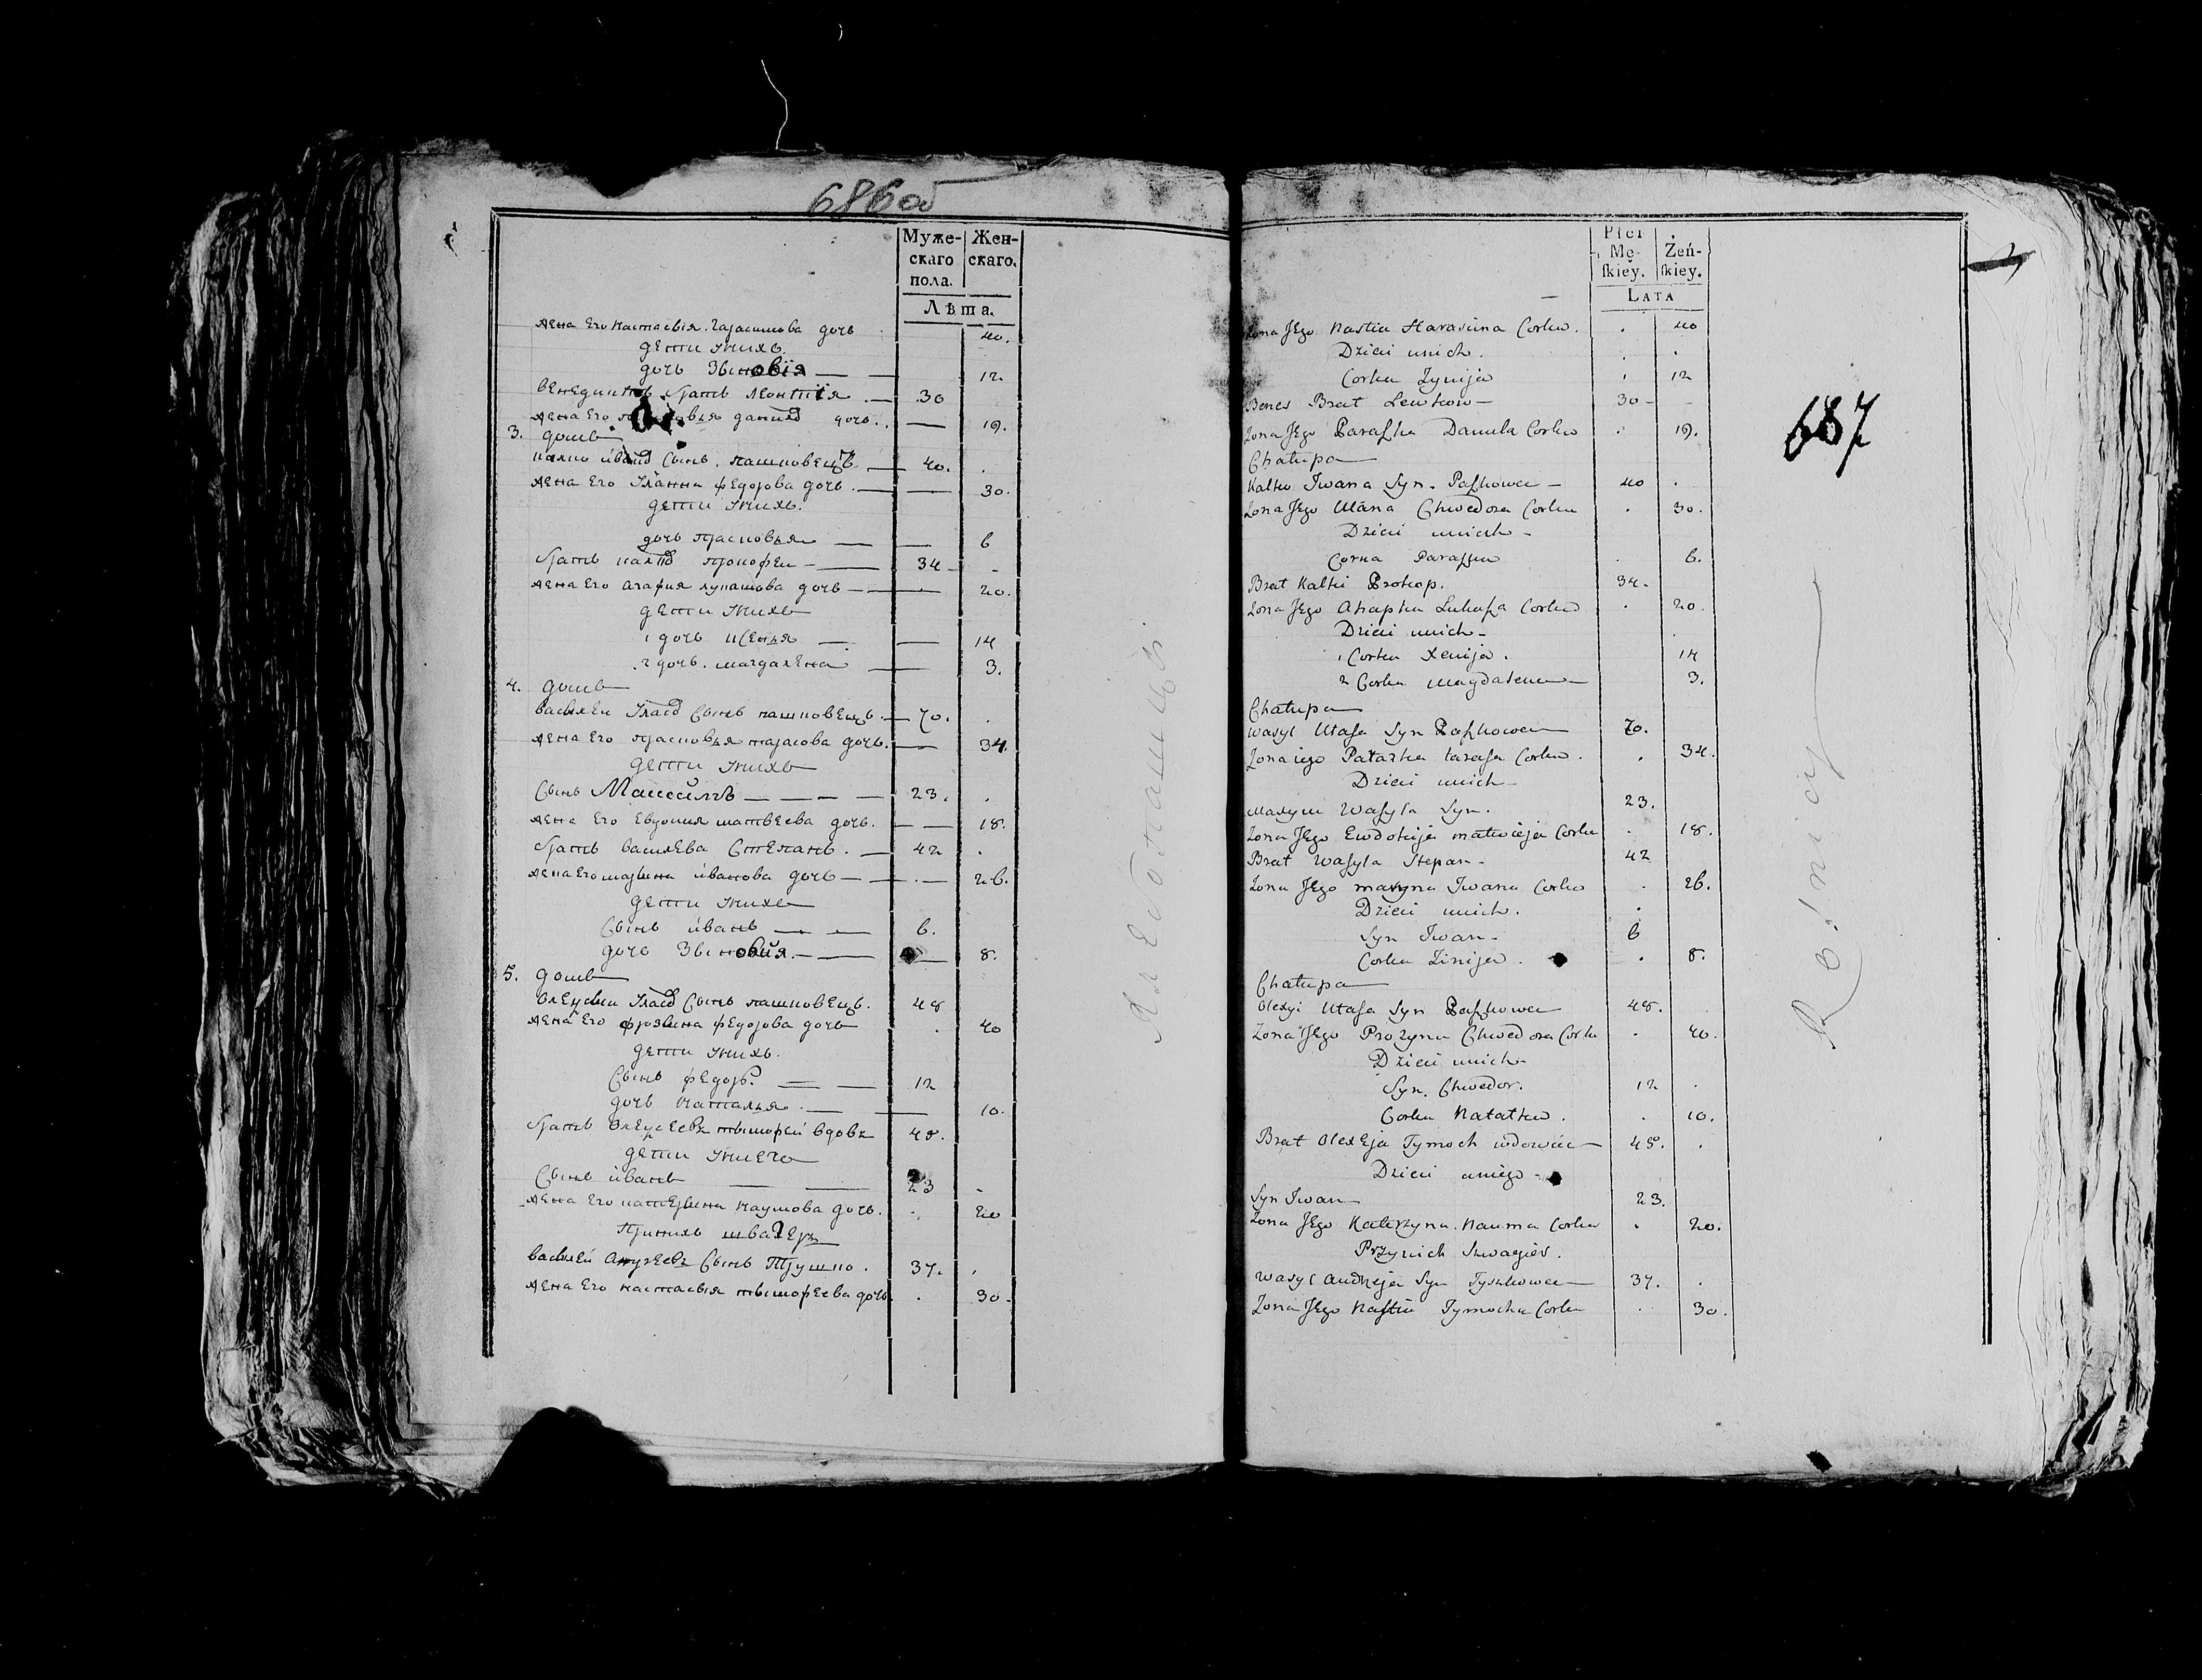 686об
Муже- Жен-
скаго скаго.
пола.
Лѣта.
жена Его настасвія Гарасимова дочь 40.
дети Унихъ.
дочь Зѣновія 12
Бенедиктъ братъ леонтія 30
жена Его данил дочь 19.
3. домъ
иван Сынъ пашковецъ 40.
жена Его Уланна федорова дочь 30.
дети Унихъ.
дочь прасковья 6
братъ прокофеи 34
жена Его агафия лукашова дочь 20.
дети Унихъ
1 дочь 14
2 дочь магдалена 3.
4. домъ
василеи Улас Сынъ пашковецъ 70.
жена Его прасковья тарасова дочь 34.
дети Унихъ
Сынъ Максимъ 23.
жена Его Евдокия матвеева дочь 18.
братъ василева Степанъ 42
жена Его марина иванова дочь 26.
дети Унихъ
Сынъ иванъ 6.
дочь Зѣновия 8.
5. домъ
Улас Сынъ пашковецъ. 48
жена Его федорова дочь 40
дети Унихъ.
Сынъ федоръ 12
дочь наталья 10.
братъ тымофеи вдовъ 48.
дети Унего
Сынъ иванъ 23
жена Его катерина наумова дочь. 20
Принихъ швагеръ
василей Сынъ Трушко. 37.
жена Его настасвія тымофеева дочь. 30.
Płci
Mę- Żeń-
skiey. skiey.
LATA
Zona JEgo Nastia Harasima Corka. 40
Dzieci unich.
Corka Zynija 12
Benes Brat Lewkow 30
Zona JEgo Paraska Daniela Corka 19.
Chałupa
Kalko Iwana Syn Paszkowca 40
Zona JEgo Ulana Chwedora Corka 30.
Dzieci unich
Corka Paraska 6.
Brat Kalki Prokop. 34.
Zona JEgo Ahapka Lukasza Corka 20.
Dzieci unich
1 Corka Xenija. 14
2 Corka magdalena 3.
Chałupa
Wasyl Ułasa Syn Paszkowca 70.
Zona iego Taraza Corka. 34.
Dzieci unich
Maxym Wasyla Syn. 23.
Zona JEgo Ewdokija matwieja Corka 18.
Brat Wasyla Stepan 42
Zona JEgo maryna Iwana Corka 26.
Dzieci unich.
Syn Iwan 6
Corka Zinija. 8.
Chałupa
Olexyi Ułasa Syn Paszkowca 48.
Zona JEgo Prozyna Chwedora Corka 40.
Dzieci unich
Syn Chwedor. 12
Corka Natałka. 10.
Brat OlexEja Tymoch wdowiec 48.
Dzieci uniego
Syn Iwan 23.
Zona JEgo Katerzyna Nauma Corka 20.
Przynich Szwagier.
Wasyl Andrzeja Syn 37.
Zona JEgo Nastia Tymocha Corka 30.
687